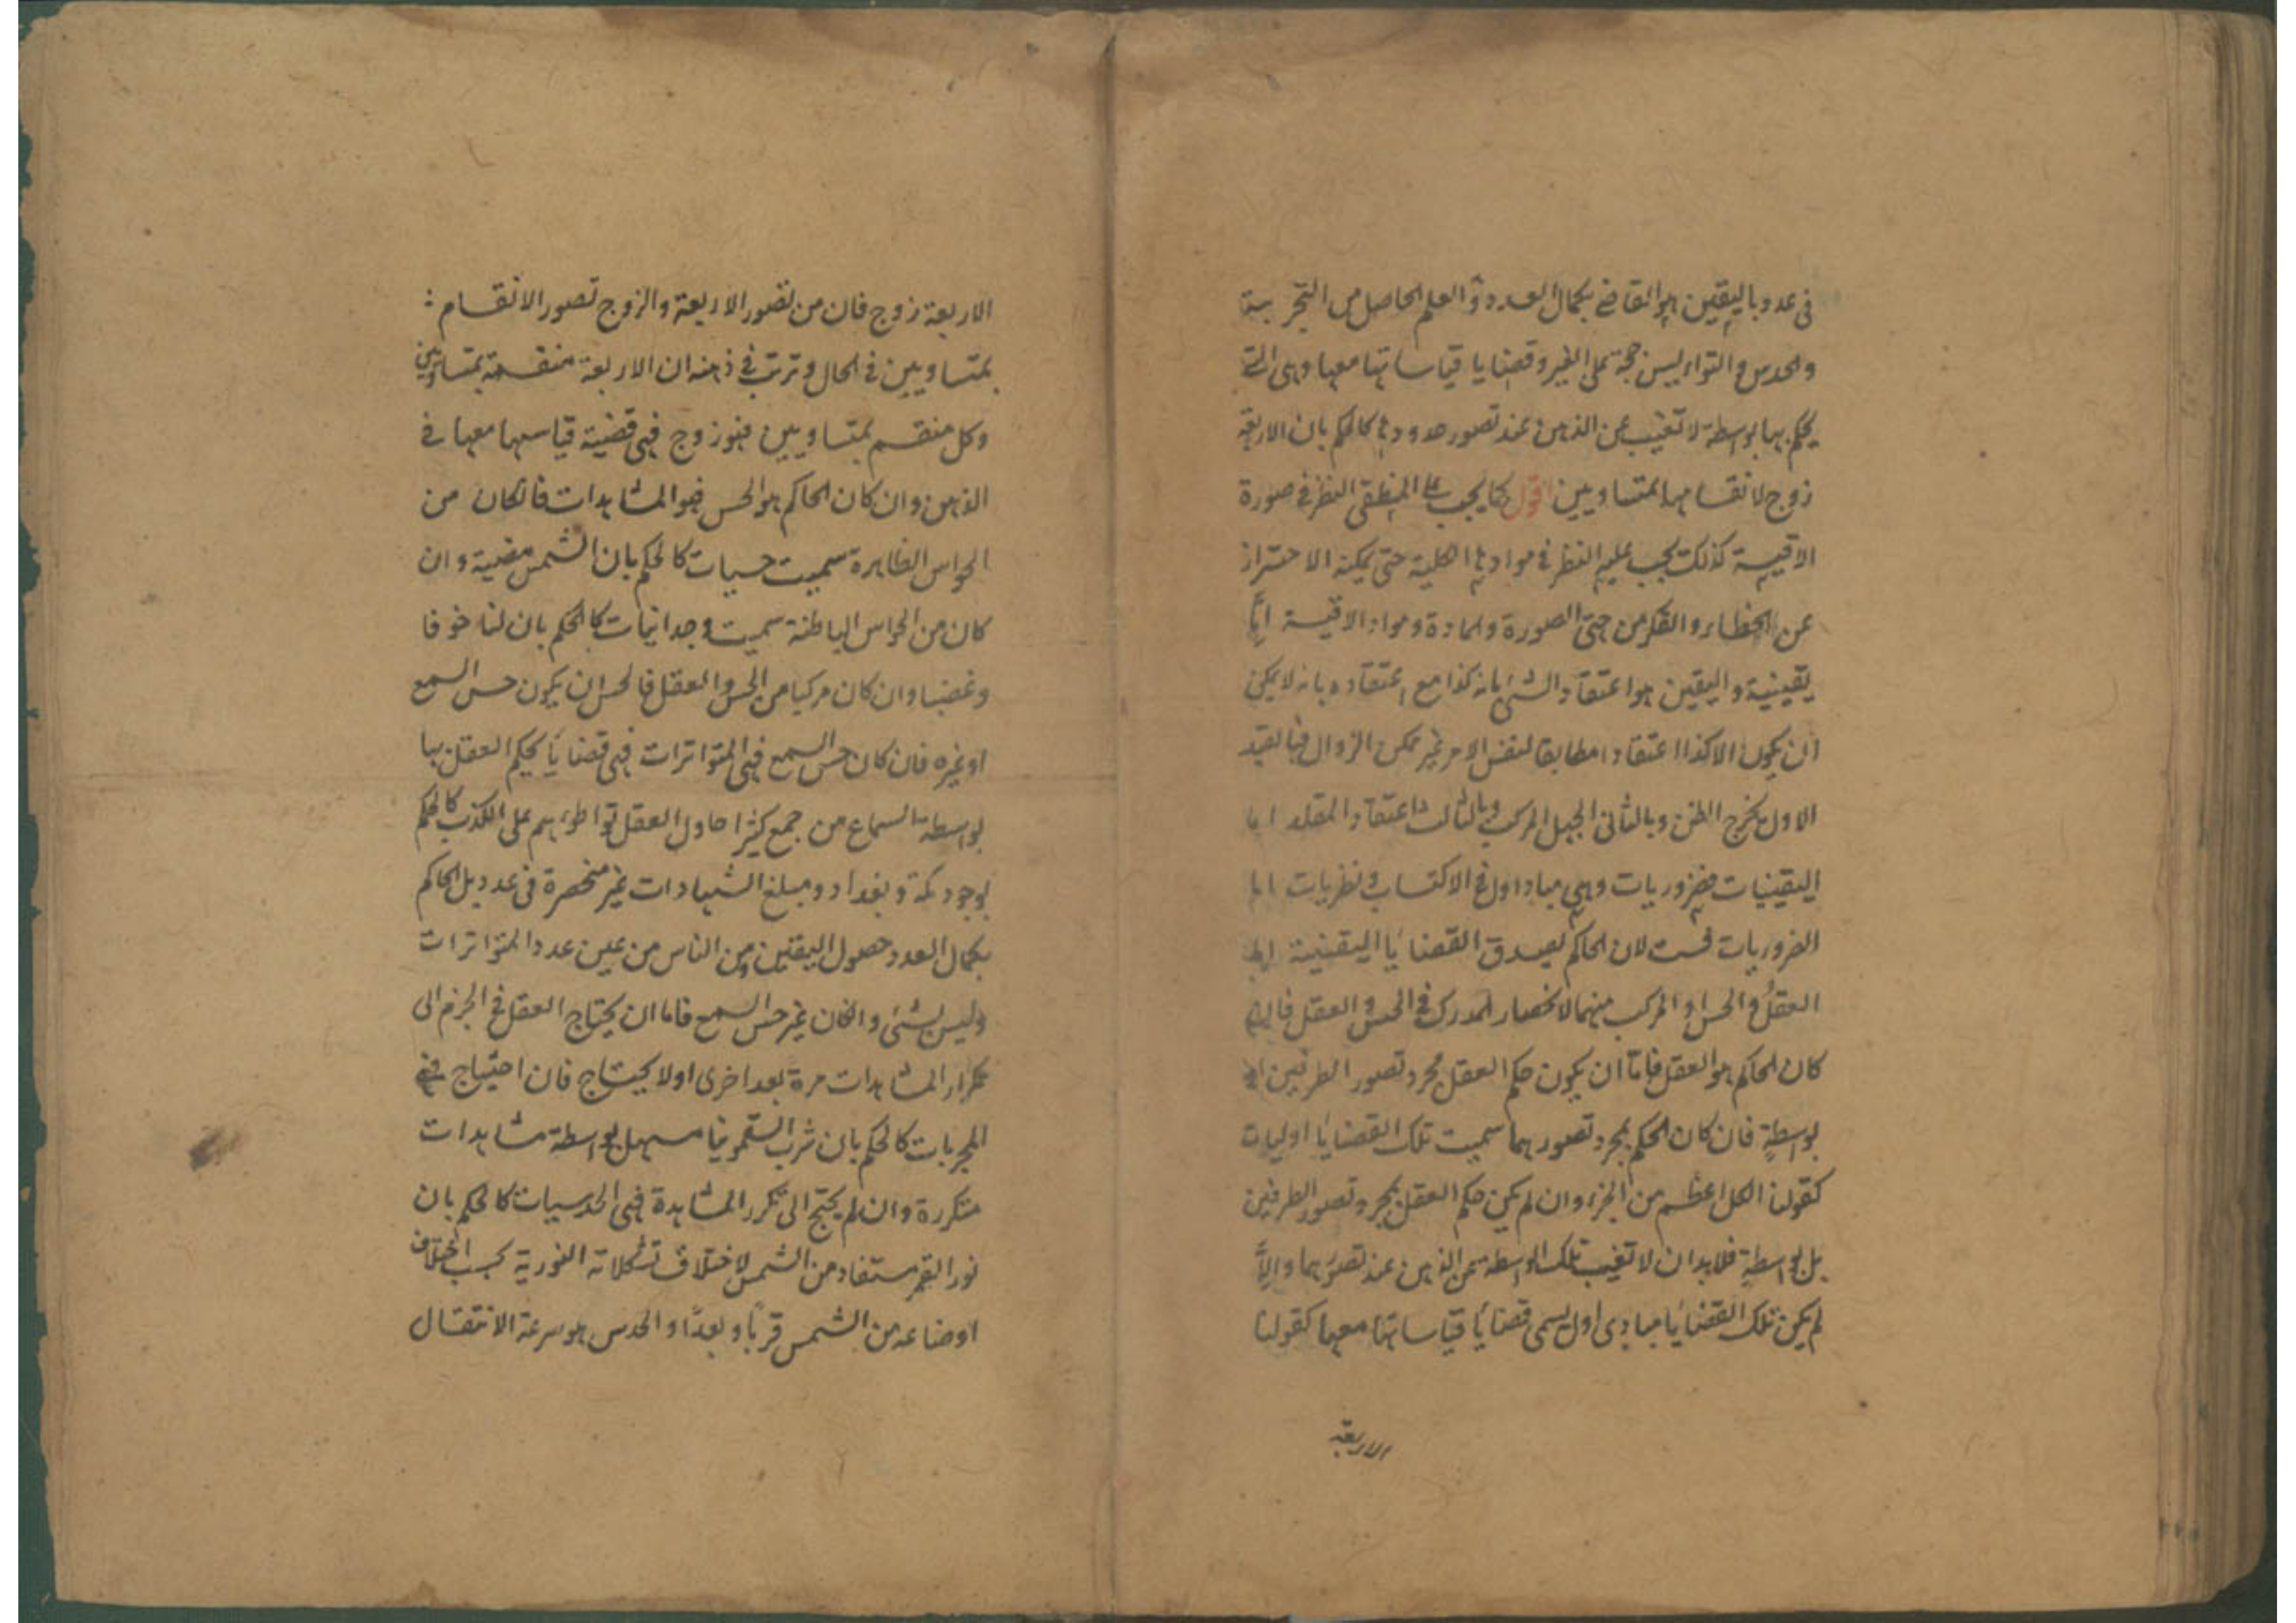 فى عدد بل اليقين هو القاضى بكمال العدد والعلم الحاصل من التجربة
والحدس والتواتر ليس حجة على الغير وقضايا قياساتها معها وهى التى
يحكم بها بواسطة لا تغيب عن الذهن عند تصور حدودها كالحكم بان الاربعة
زوج لانقسامها بمتساويين اقول كما يجب على المنطقى النظر فى صورة
الاقيسة كذلك يجب عليه النظر فى موادها الكلية حتى يمكنه الاحتراز
عن الخطاء والفكر من جهتى الصورة والمادة ومواد الاقيسة اما
يقينية واليقين هو اعتقاد الشئ بانه كذا مع اعتقاده بانه لا يمكن
ان يكون الا كذا اعتقادا مطابقا لنفس الامر غير ممكن الزوال فبالقيد
الاول يخرج الظن وبالثانى الجهل المركب وبالثالث اعتقاد المقلد اما
اليقينيات فضروريات وهى مباد اول فى الاكتساب ونظريات اما
الضروريات فست لان الحاكم بصدق القضايا اليقينية اما
العقل والحس او المركب منهما لانحصار المدرك فى الحس والعقل فان
كان الحاكم هو العقل فاما ان يكون حكم العقل بمجرد تصور الطرفين او
بواسطة فان كان الحكم بمجرد تصورهما سميت تلك القضايا اوليات
كقولنا الكل اعظم من الجزء وان لم يكن حكم العقل بمجرد تصور الطرفين
بل بواسطة فلا بد ان لا تغيب تلك الواسطة عن الذهن عند تصورهما والا
لم يكن تلك القضايا مبادى اول يسمى قضايا قياساتها معها كقولنا
الاربعة
الاربعة زوج فان من تصور الاربعة والزوج تصور الانقسام :
بمتساويين فى الحال وترتب فى ذهنه ان الاربعة منقسمة بمتساويين
وكل منقسم بمتساويين فهو زوج فهى قضية قياسها معها فى
الذهن وان كان الحاكم هو الحس فهو المشاهدات فانكان من
الحواس الظاهرة سميت حسيات كالحكم بان الشمس مضيئة وان
كان من الحواس الباطنة سميت وجدانيات كالحكم بان لنا خوفا
وغضبا وان كان مركبا من الحس والعقل فالحس ان يكون حس السمع
او غيره فان كان حس السمع فهى المتواترات فهى قضايا يحكم العقل بها
بواسطة السماع من جمع كثير احاول العقل تواطؤهم على الكذب كالحكم
بوجود مكة وبغداد ومبلغ الشهادات غير منحصرة فى عدد بل الحاكم
بكمال العدد حصول اليقين ومن الناس من عين عدد المتواترات
وليس بشئ وانكان غير حس السمع فاما ان يحتاج العقل فى الجزم الى
تكرار المشاهدات مرة بعد اخرى اولا يحتاج فان احتياج فهى
المجربات كالحكم بان شرب السقمونيا مسهل بواسطة مشاهدات
متكررة وان لم يحتج الى تكرر المشاهدة فهى الحدسيات كالحكم بان
نور القمر مستفاد من الشمس لاختلاف تشكلاته النورية بحسب اختلاف
اوضاعه من الشمس قربا وبعدا والحدس هو سرعة الانتقال